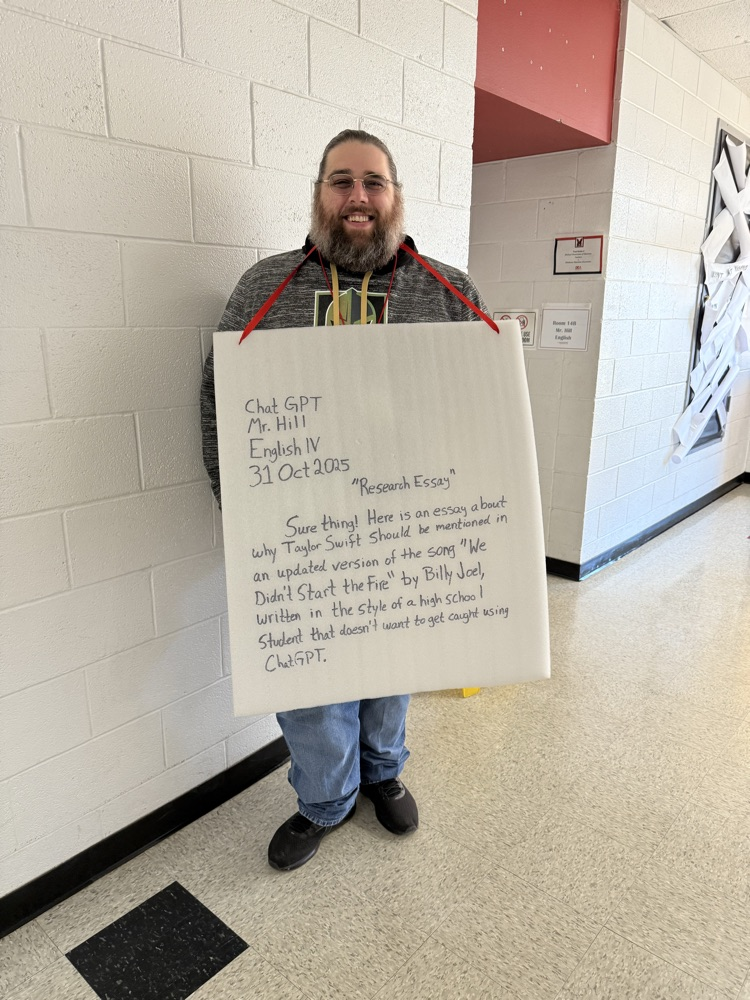 Chat GPT
Mr. Hill
English IV
31 Oct 2025
"Research Essay"
Sure thing! Here is an essay about
why Taylor Swift should be mentioned in
an updated version of the song "We
Didn't Start the Fire" by Billy Joel,
written in the style of a high school
student that doesn't want to get caught using
ChatGPT.
Room 140
Mr. Hill
English